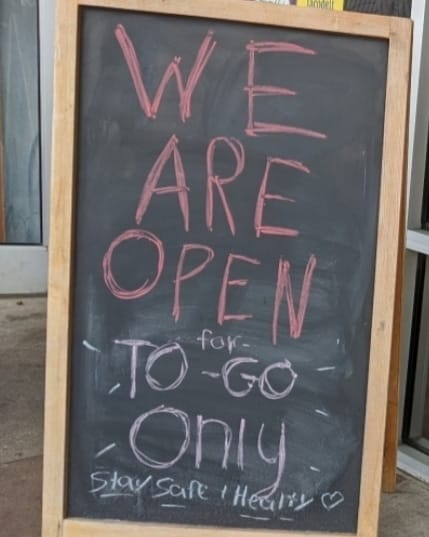 WE
ARE
OPEN
for
TO-GO
Only
Stay Safe + Healthy ♡